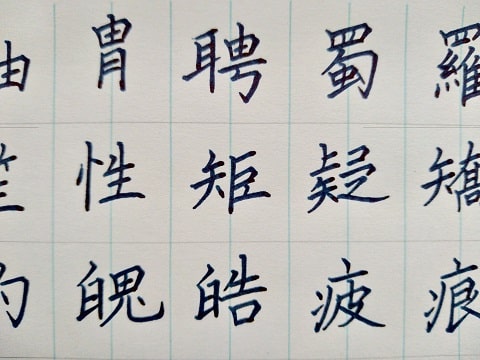 冑 聘 蜀 羅
性 矩 疑 矯
魄 皓 疲 痕